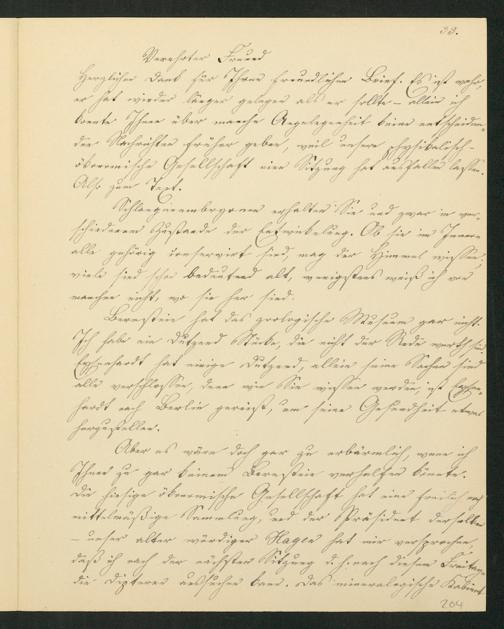 33.
Verehrter Freund
Herzlichen Dank für Ihren freundlichen Brief. Es ist wahr,
er hat wieder länger gelegen als er sollte – allein ich
konnte Ihnen über manche Angelegenheit keine entscheiden-
den Nachrichten früher geben, weil unsere physikalisch-
ökonomische Gesellschaft eine Sitzung hat ausfallen lassen.
Also zum Text.
Schlangenembryonen erhalten Sie und zwar in ver-
schiedenen Zuständen der Entwickelung. Ob sie im Innern
alle gehörig conservirt sind, mag der Himmel wissen,
viele sind schon bedeutend alt, wenigstens weiß ich von
manchen nicht, wo sie her sind.
Bernstein hat das zoologische Museum gar nicht.
Ich habe ein Dutzend Stücke, die nicht der Rede werth sind.
Eysenhardt hat einige Dutzend, allein seine Sachen sind
alle verschlossen, denn wie Sie wissen werden, ist Eysen-
hardt nach Berlin gereist, um seine Gesundheit etwas
herzustellen.
Aber es wäre doch gar zu erbärmlich, wenn ich
Ihnen zu gar keinem Bernstein verhelfen könnte.
Die hiesige ökonomische Gesellschaft hat eine freilich nur
mittelmäßige Sammlung, und der Präsident derselben
– unser alter würdiger Hagen hat mir versprochen,
daß ich nach der nächsten Sitzung d. h. nach diesem Freitage
die Dipteren aussuchen kann. Das mineralogische Kabinet
204